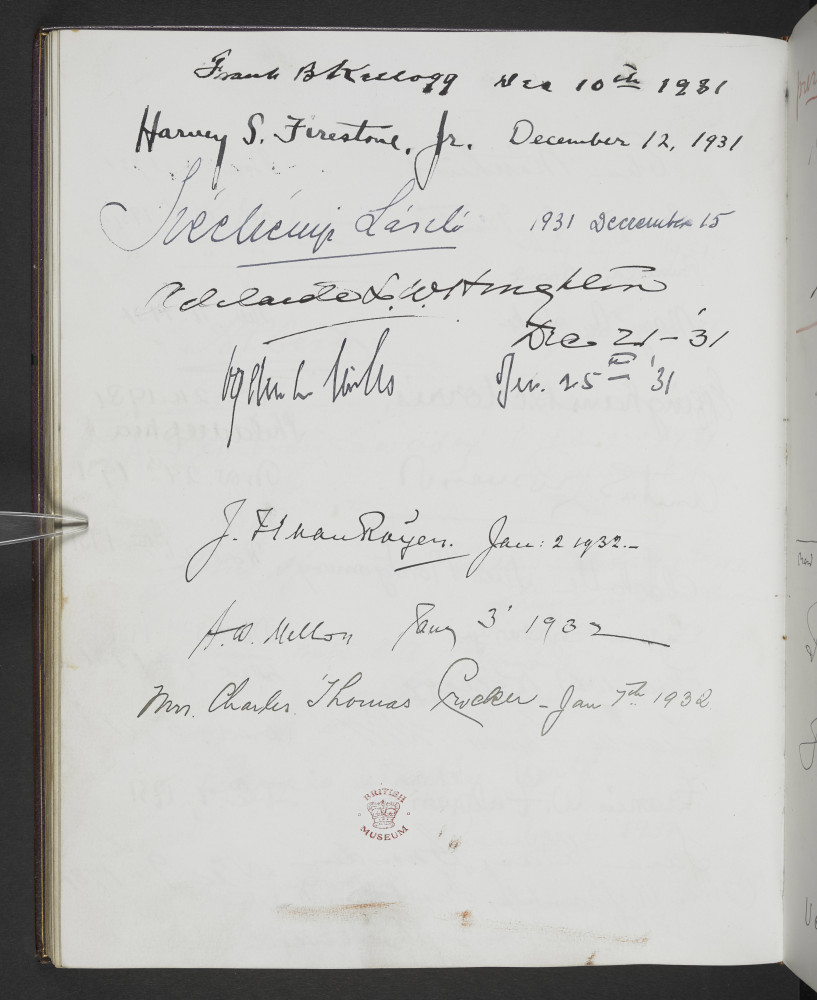 Frank B Kellogg Dec 10th 1931
Harvey S. Firestone, Jr. December 12, 1931
Széchényi László 1931 December 15
Adelaide L. W. Houghton
Dec 21 - '31
Dec. 25th '31
J. H. van Royen. Jan: 2 1932.-
A. W. Mellon Jany 3' 1932
Mrs. Charles Thomas Crocker - Jan 7th 1932
BRITISH
MUSEUM